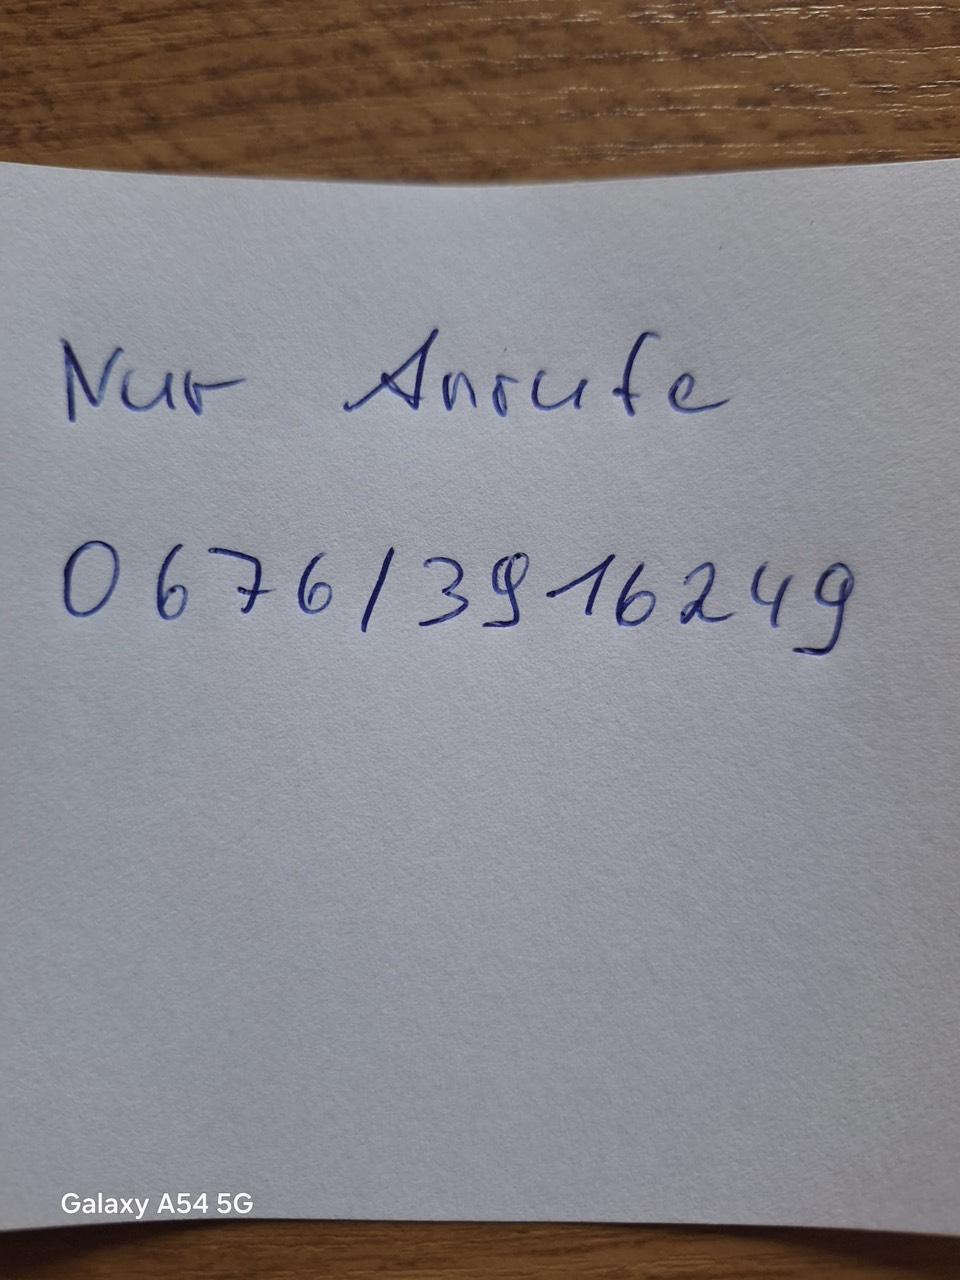 Nur Anrufe
0676/3916249
Galaxy A54 5G